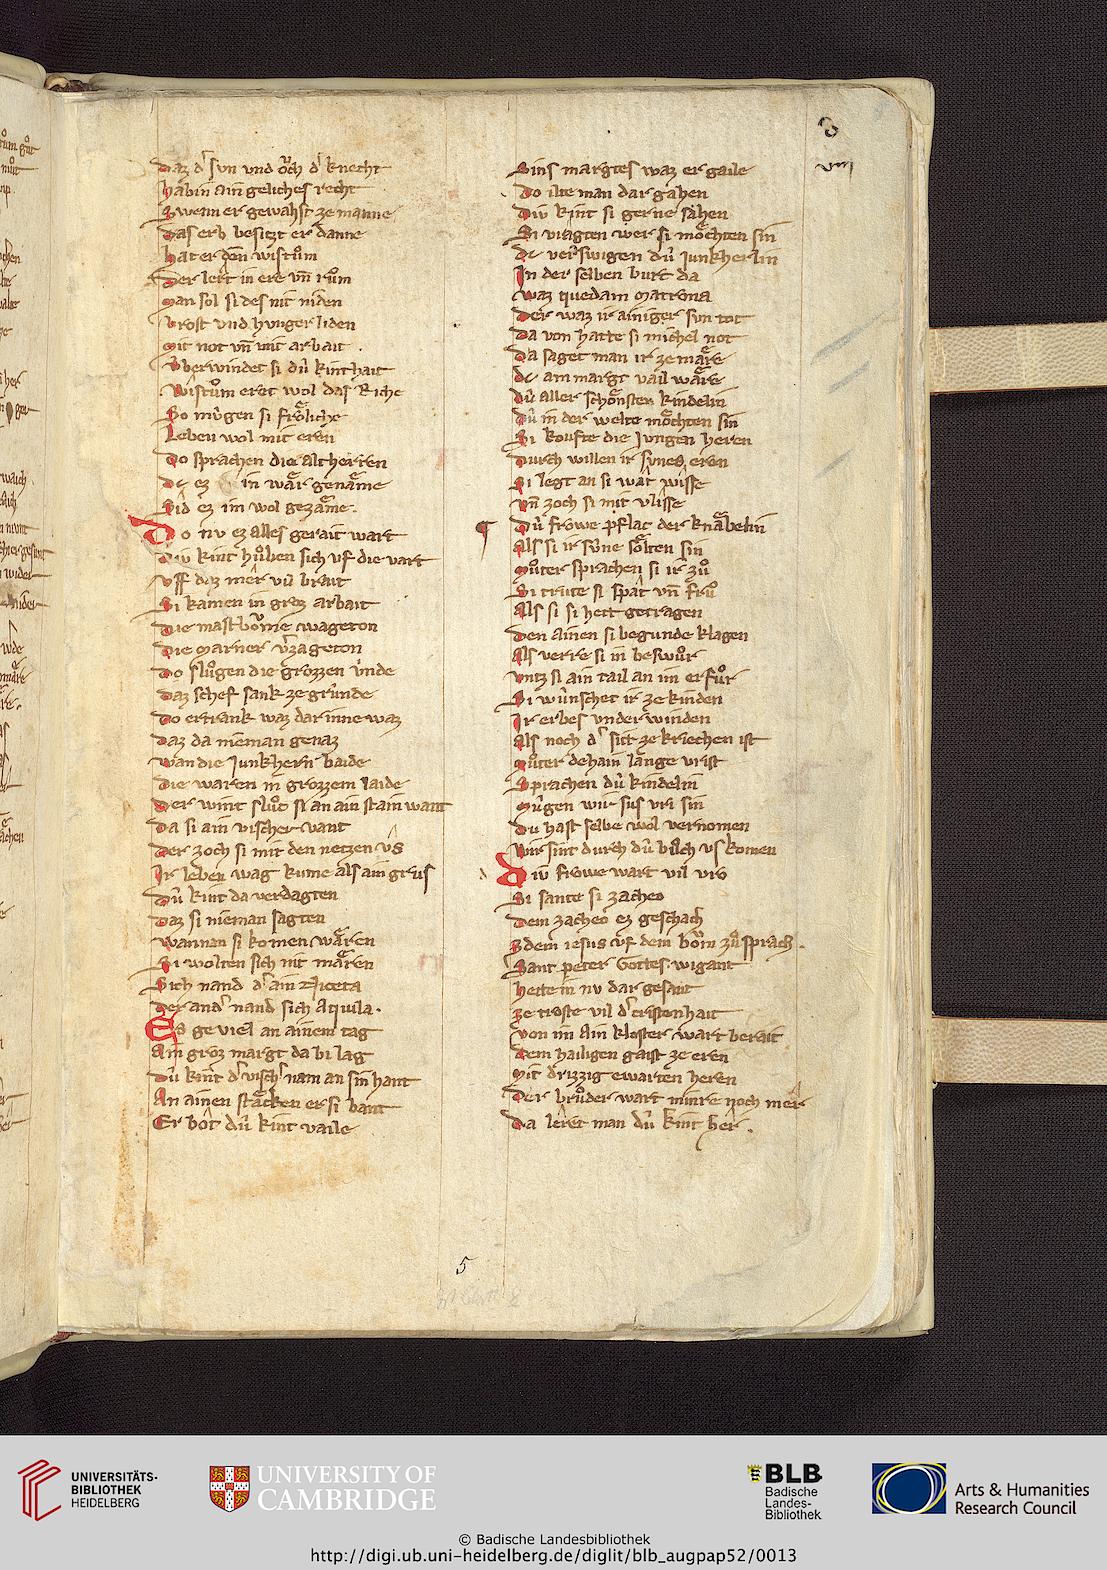 daz dˢ sun und oͮch dˢ knecht
habin ain geliches recht
Swenn er gewahst ze manne
Das erb besitzt er danne
hat er den wistuͦm
Der lert in ere vn̄ ruͦm
Man sol si des nit niden
Vrost vnd hunger liden
Mit not vn̄ mit arbait
Vberwindet si dû kinthait
Wistuͦm eret wol das Riche
So mûgen si froͤliche
Leben wol mit eren
Do sprachen die altherren
dc ez in waͤr genaͤme
Sid ez im wol gezaͤme.
Do nv ez alles gerait wart
Div kint huͦben sich vf die vart
Vff daz mer vû brait
Si kamen in groz arbait
Die mastboͮme wageton
Die marner vˢzageton
Do sluͦgen die grozzen vnde
Daz schef sank ze grunde
Do ertrank waz dar inne waz
Daz da nieman genaz
Wan die Junkhern baide
Die waren in grozzem laide
Der wint sluͦc si an ain stain want
Da si ain vischer vant
Der zoch si mit den netzen vs
Ir leben wag kume als ain grus
Dû kint da verdagten
Daz si nieman sagten
Wannan si komen waͤren
Si wolten sich nit maͤren
Sich nand dˢ ain Niceta
Der andˢ nand sich Aquila.
Es geviel an ainem tag
Ain groz margt da bi lag
Dû kint dˢ vischˢ nam an sin hant
An ainen staͤcken er si bant
Er bot dû kint vaile
8
viij
Sins margtes waz er gaile
Do ilte man dar gahen
Div kint si gerne sahen
Si vragten wer si moͤchten sin
dc verswigten dû Junkherlin
In der selben burt da
Waz quedam matrona
Der waz ir ainiger sun tot
Da von hatte si michel not
Da saget man ir ze maͤre
dc am margt vail waͤre
Dû aller schoͤnsten kindelin
Dû in der welte moͤchten sin
Si koufte die Jungen heren
Durch willen ir sunes eren
Si legt an si wat wisse
Vn̄ zoch si mit vlisse
Dû frowe pflac der knaͤbelin
Als si ir sûne soͤlten sin
Muͦter sprachen si ir zuͦ
Si trute si spat vn̄ fruͦ
Als si si hett getragen
Den ainen si begunde klagen
Als verre si in beswuͦr
Vntz si ain tail an im erfuͦr
Si wûnschet ir ze kinden
Ir erbes vnder winden
Als noch dˢ sitt ze kriechen ist
Muͦter dehain lange vrist
Sprachen dû kindelin
Mûgen wir sus vri sin
Du hast selbe wol vernomen
Wir sint durch dû buͦch vs komen
Div frowe wart vil vro
Si sante si zacheo
Dem zacheo ez geschach
Zdem iesus vf dem boͮm zuͦ sprach.
Sant peter Gottes wigant
Hette in nv dar gesant
Ze troste vil dˢ cristenhait
Von im ain kloster wart berait
Dem hailigen gaist ze eren
Mit drizzig ewarten heren
Der bruͦder wart minre noch mer
Da leret man dû kint her.
5
UNIVERSITÄTS-
BIBLIOTHEK
HEIDELBERG
UNIVERSITY OF
CAMBRIDGE
BLB
Badische
Landes-
Bibliothek
Arts & Humanities
Research Council
© Badische Landesbibliothek
http://digi.ub.uni-heidelberg.de/diglit/blb_augpap52/0013